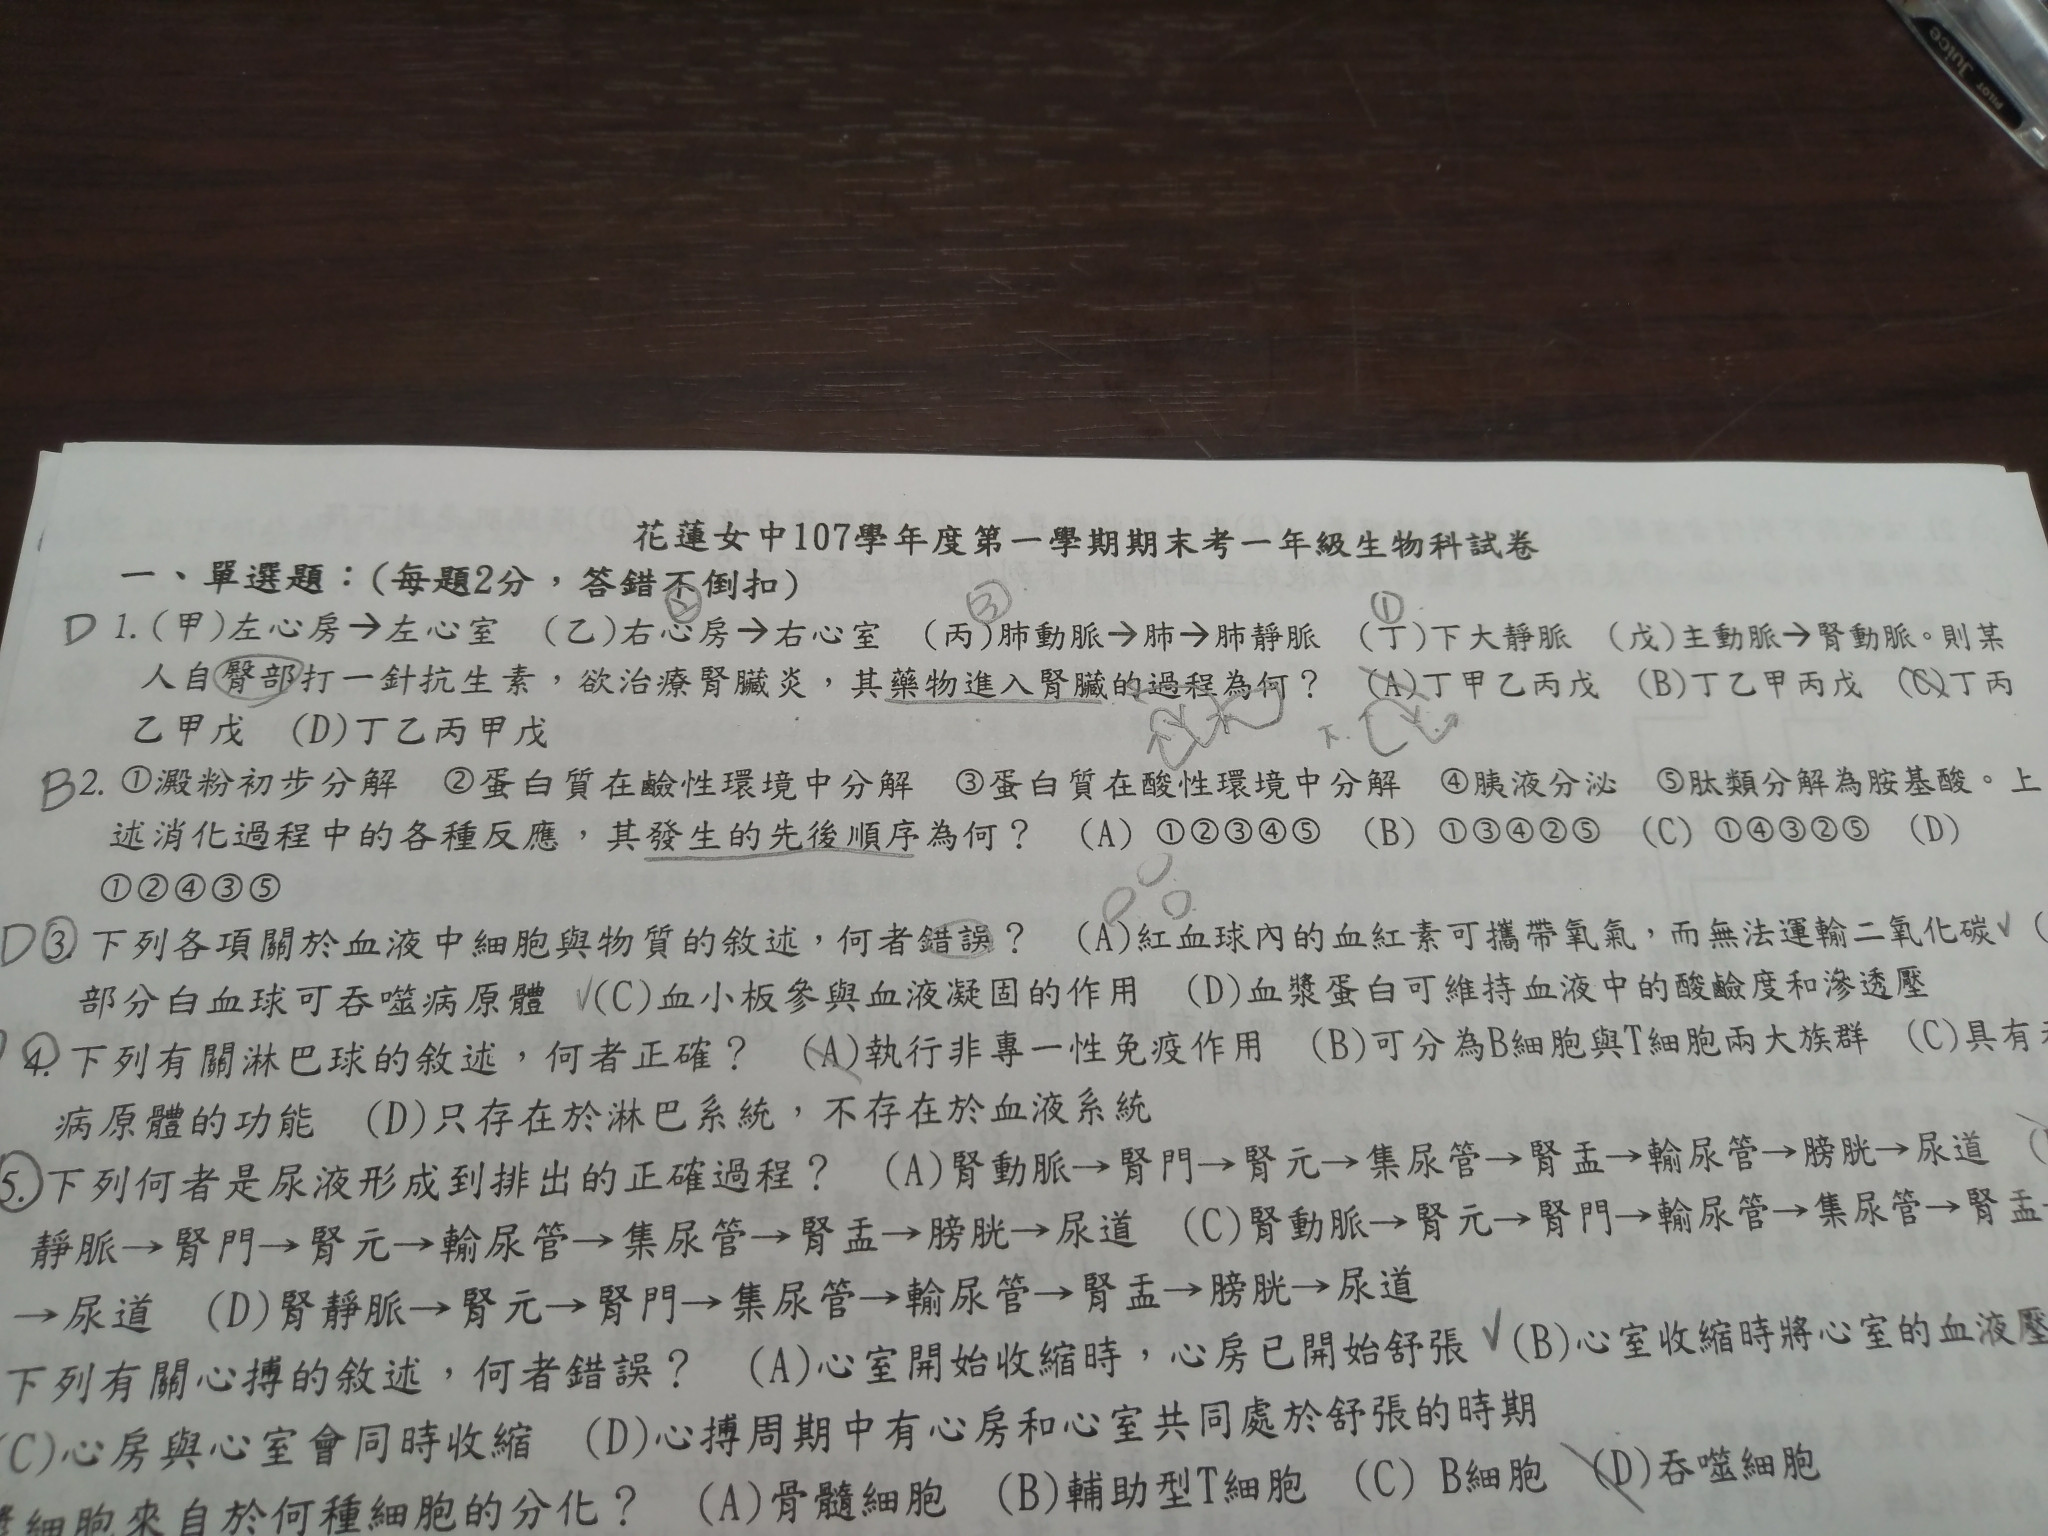 Juice PILOT
花蓮女中107學年度第一學期期末考一年級生物科試卷
一、單選題：(每題2分，答錯不倒扣)
② ③ ①
D 1.(甲)左心房→左心室 (乙)右心房→右心室 (丙)肺動脈→肺→肺靜脈 (丁)下大靜脈 (戊)主動脈→腎動脈。則某
人自臀部打一針抗生素，欲治療腎臟炎，其藥物進入腎臟的過程為何？ (A)丁甲乙丙戊 (B)丁乙甲丙戊 (C)丁丙
乙甲戊 (D)丁乙丙甲戊 下.
B 2. ①澱粉初步分解 ②蛋白質在鹼性環境中分解 ③蛋白質在酸性環境中分解 ④胰液分泌 ⑤肽類分解為胺基酸。上
述消化過程中的各種反應，其發生的先後順序為何？ (A) ①②③④⑤ (B) ①③④②⑤ (C) ①④③②⑤ (D)
①②④③⑤
D 3. 下列各項關於血液中細胞與物質的敘述，何者錯誤？ (A)紅血球內的血紅素可攜帶氧氣，而無法運輸二氧化碳 (
部分白血球可吞噬病原體 (C)血小板參與血液凝固的作用 (D)血漿蛋白可維持血液中的酸鹼度和滲透壓
4. 下列有關淋巴球的敘述，何者正確？ (A)執行非專一性免疫作用 (B)可分為B細胞與T細胞兩大族群 (C)具有
病原體的功能 (D)只存在於淋巴系統，不存在於血液系統
5. 下列何者是尿液形成到排出的正確過程？ (A)腎動脈→腎門→腎元→集尿管→腎盂→輸尿管→膀胱→尿道
靜脈→腎門→腎元→輸尿管→集尿管→腎盂→膀胱→尿道 (C)腎動脈→腎元→腎門→輸尿管→集尿管→腎盂
→尿道 (D)腎靜脈→腎元→腎門→集尿管→輸尿管→腎盂→膀胱→尿道
下列有關心搏的敘述，何者錯誤？ (A)心室開始收縮時，心房已開始舒張 (B)心室收縮時將心室的血液壓
(C)心房與心室會同時收縮 (D)心搏周期中有心房和心室共同處於舒張的時期
細胞來自於何種細胞的分化？ (A)骨髓細胞 (B)輔助型T細胞 (C) B細胞 (D)吞噬細胞